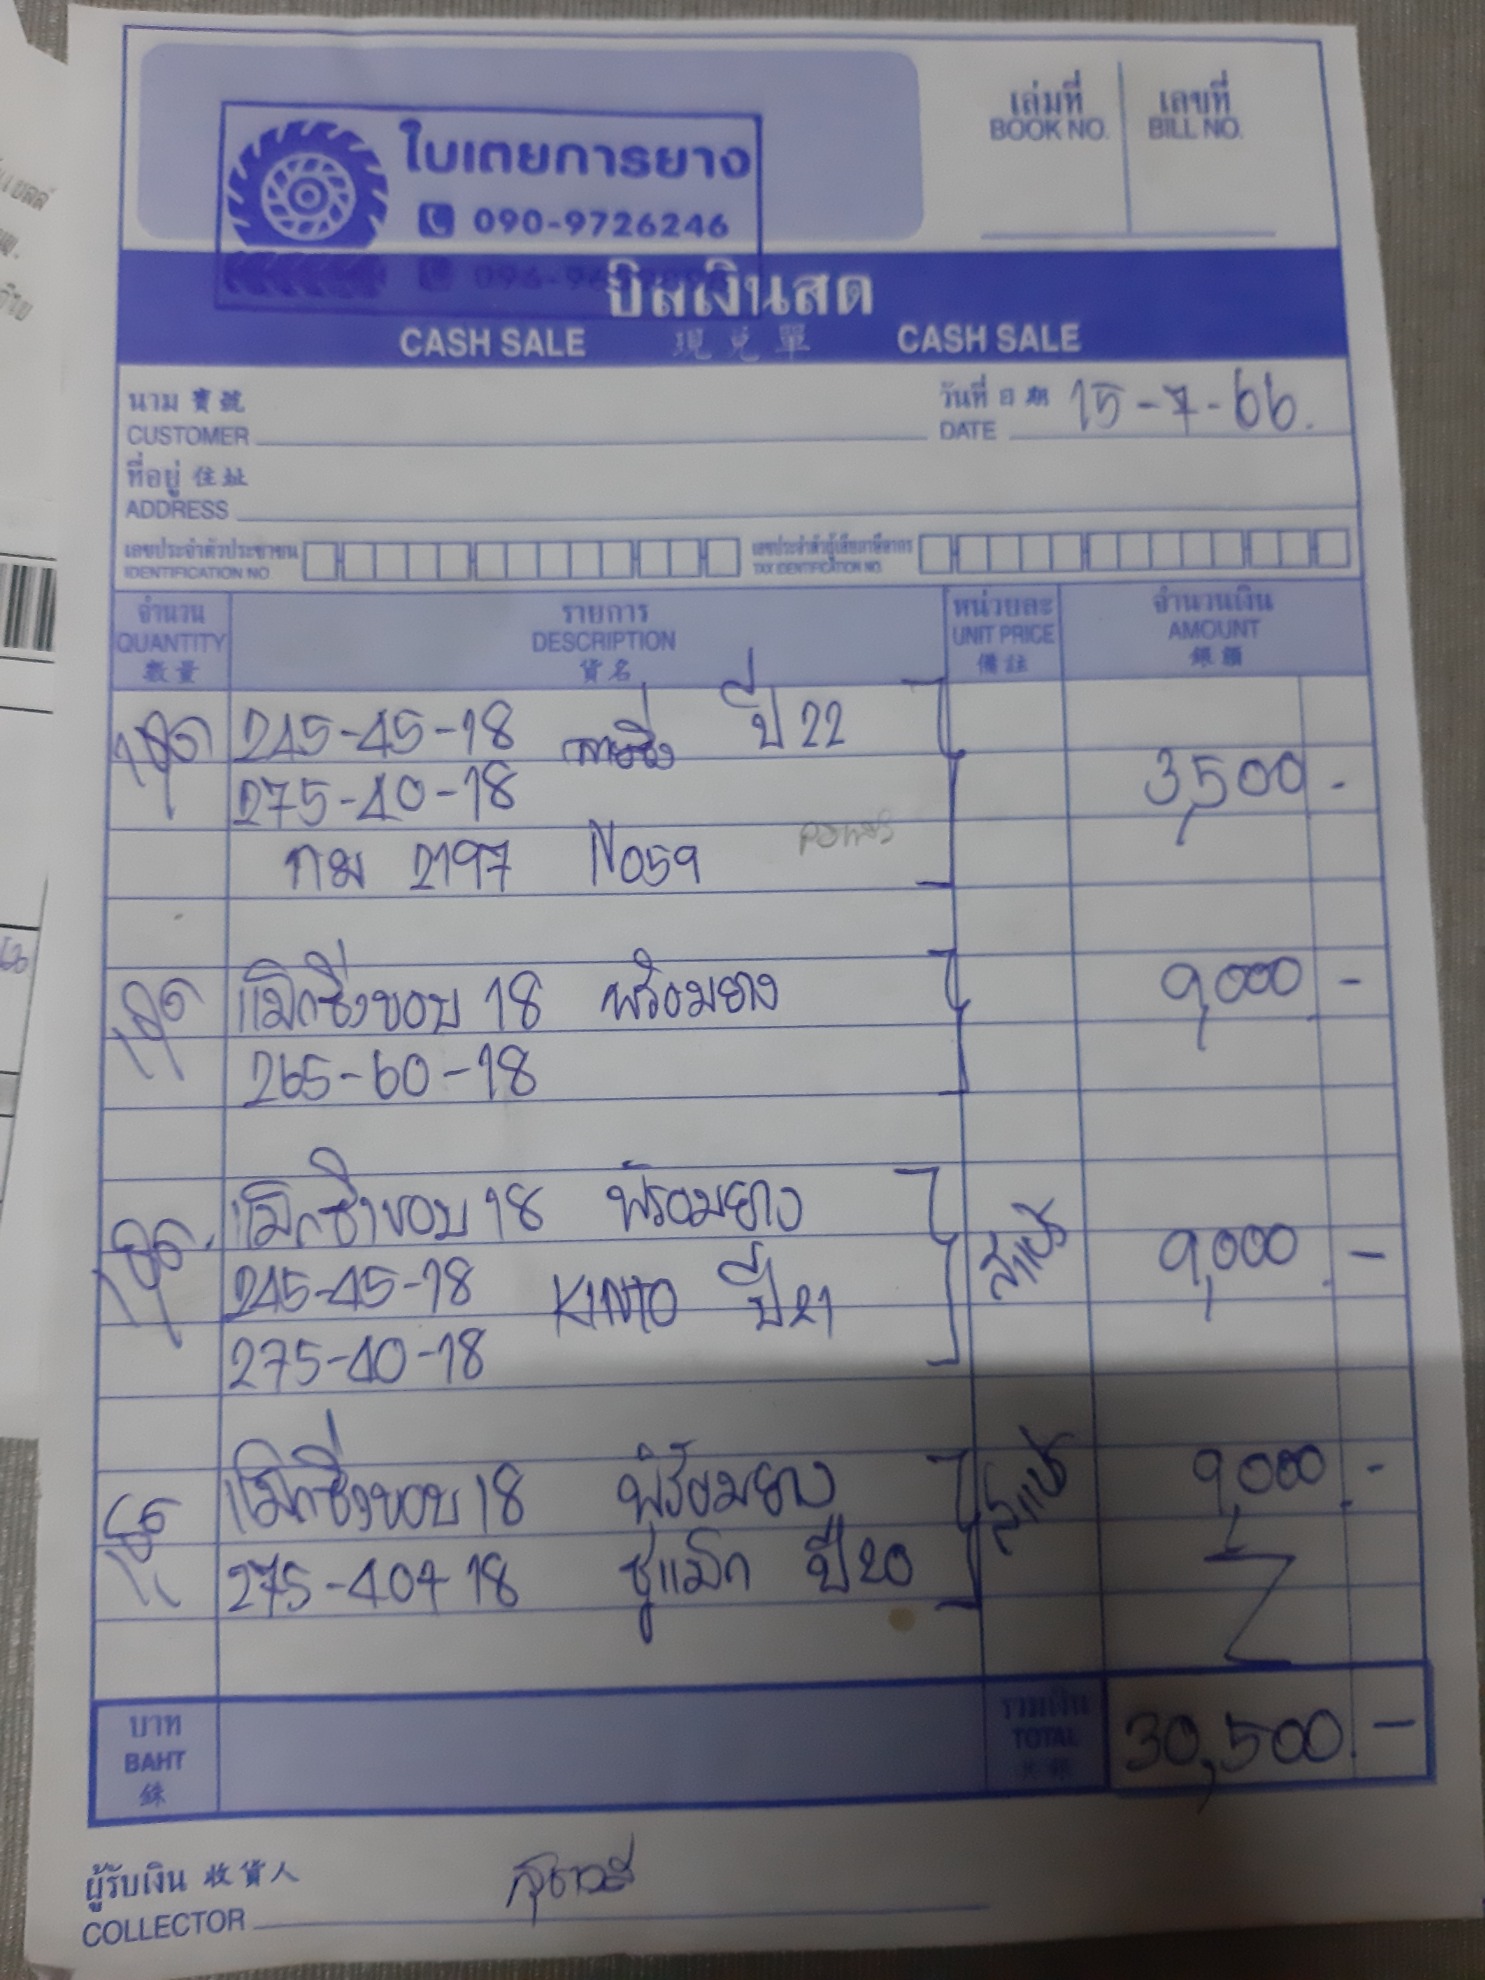 เล่มที่ เลขที่
BOOK NO. BILL NO.
ใบเตยการยาง
090-9726246
บิลเงินสด
CASH SALE 現兌單 CASH SALE
นาม 寶號 วันที่ 日期 15-7-66.
CUSTOMER DATE
ที่อยู่ 住址
ADDRESS
เลขประจำตัวประชาชน เลขประจำตัวผู้เสียภาษีอากร
IDENTIFICATION NO. TAX IDENTIFICATION NO.
จำนวน รายการ หน่วยละ จำนวนเงิน
QUANTITY DESCRIPTION UNIT PRICE AMOUNT
數量 貨名 備註 銀額
1ชุด 245-45-18 ปี 22
275-40-18 3,500 -
กม 2197 N059
1ชุด แม็กซิ่งขอบ 18 พร้อมยาง 9,000 -
265-60-18
1ชุด. แม็กซิ่งขอบ 18 พร้อมยาง
245-45-18 KINTO ปี 21 9,000 -
275-40-18
1ชุด แม็กซิ่งขอบ 18 พร้อมยาง 9,000 -
275-40+18 ชูแม็ก ปี 20
บาท รวมเงิน
BAHT TOTAL 30,500 -
銖
ผู้รับเงิน 收貨人
COLLECTOR